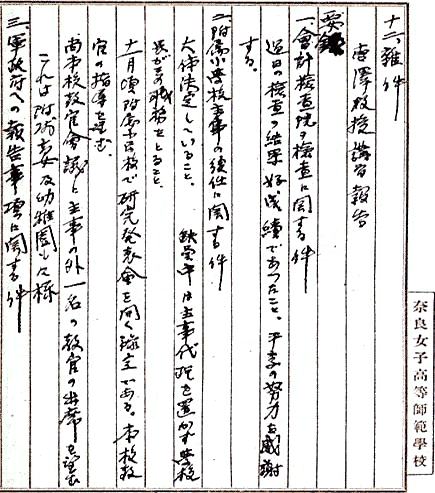 十二、雑件
唐澤教授 講習報告
要録
一、會計檢査院ノ檢査に関する件
近日の檢査の結果好成績であつたこと。平素の努力を感謝
する。
二、附属小学校主事の後任に関する件
大体決定していること。缺員中は主事代理を置かず学校
長がその職務をとること。
十一月頃附属小学校で研究発表会を開く予定である。本校教
官の指導を望む。
尚本校教官会議に主事の外一名の教官の出席を望む
これは附属高女及幼稚園も同様
三、軍政府への報告事項に関する件
奈良女子高等師範學校